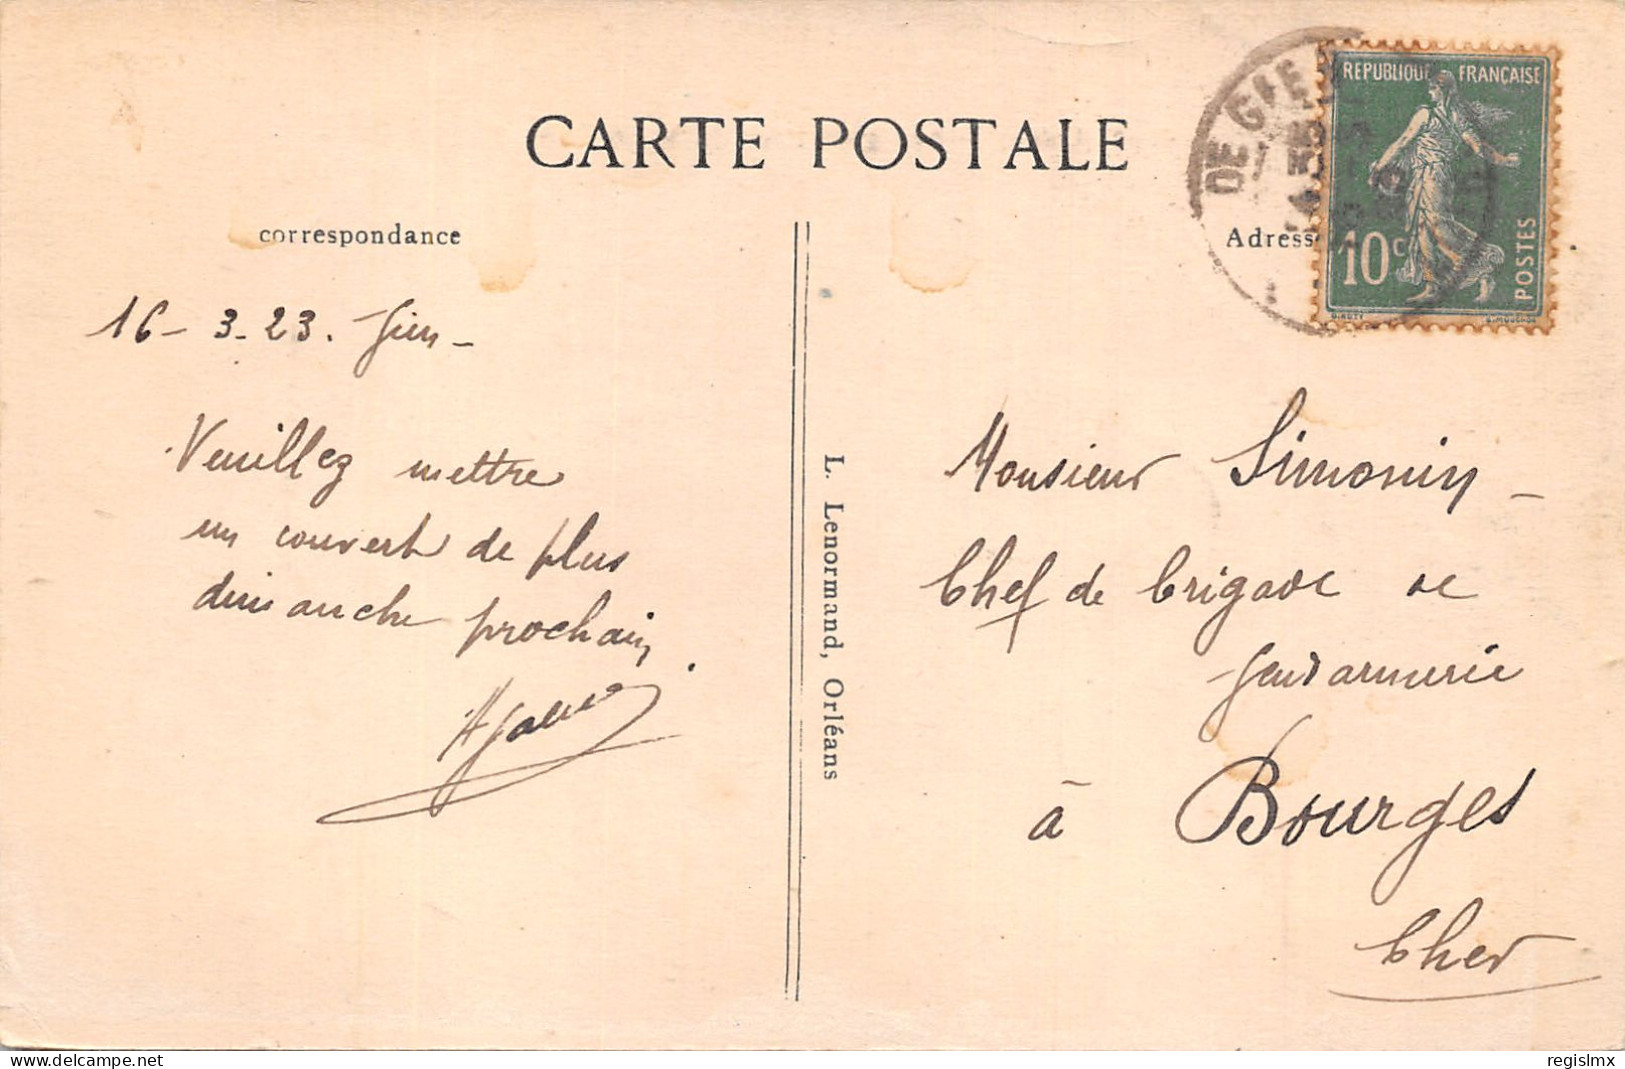 CARTE POSTALE
correspondance
Adress
RÉPUBLIQUE FRANÇAISE
10c
POSTES
DE GIEN
1435
16 - 3 - 23. Gien -
Veuillez mettre
un couvert de plus
dimanche prochain.
L. Lenormand, Orléans
Monsieur Simonin -
Chef de brigade de
gendarmerie
à Bourges
Cher
delcampe.net
regislmx